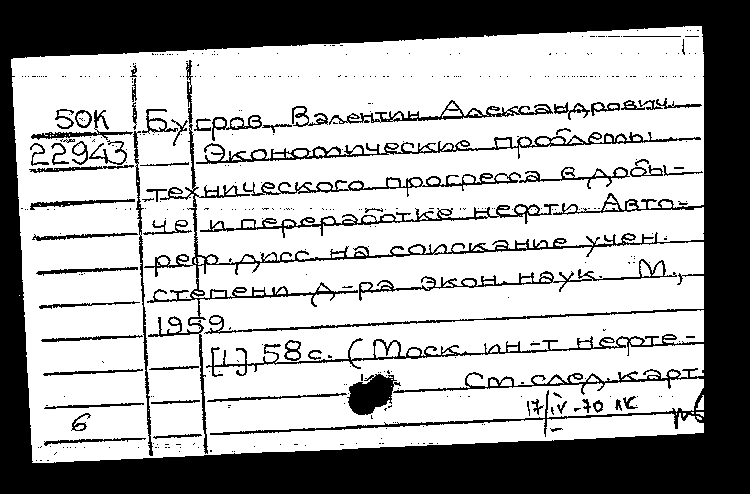 50К Бугров, Валентин Александрович.
22943 Экономические проблемы
технического прогресса в добы-
че и переработке нефти Авто-
реф. дисс. на соискание учен.
степени д-ра экон. наук. М.,
1959.
[1], 58 с. (Моск. ин-т нефте-
См. след. карт.
17/IV-70 ЛК
6